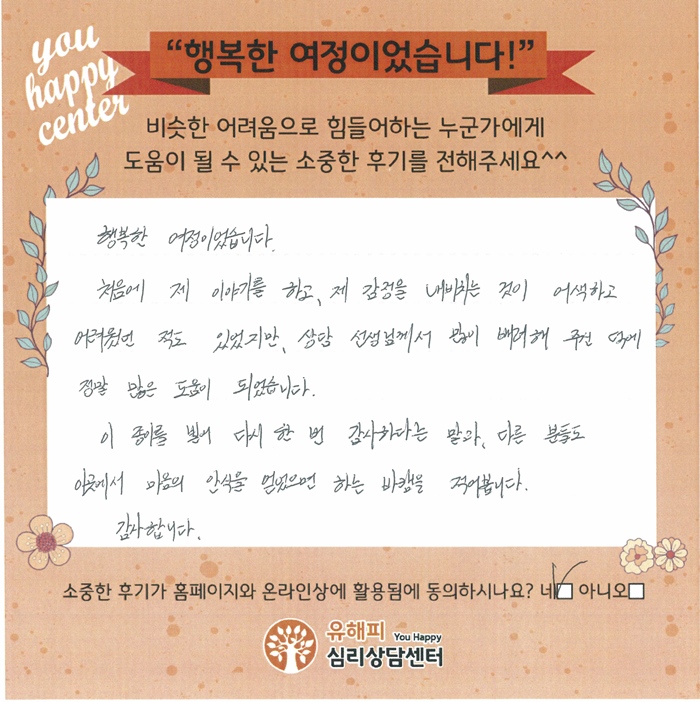 you
happy
center
“행복한 여정이었습니다!”
비슷한 어려움으로 힘들어하는 누군가에게
도움이 될 수 있는 소중한 후기를 전해주세요^^
행복한 여정이었습니다.
처음에 제 이야기를 하고, 제 감정을 내비치는 것이 어색하고
어려웠던 적도 있었지만, 상담 선생님께서 많이 배려해 주신 덕에
정말 많은 도움이 되었습니다.
이 종이를 빌려 다시 한 번 감사하다는 말과, 다른 분들도
이곳에서 마음의 안식을 얻었으면 하는 바램을 적어봅니다.
감사합니다.
소중한 후기가 홈페이지와 온라인상에 활용됨에 동의하시나요? 네 아니오
유해피 You Happy
심리상담센터